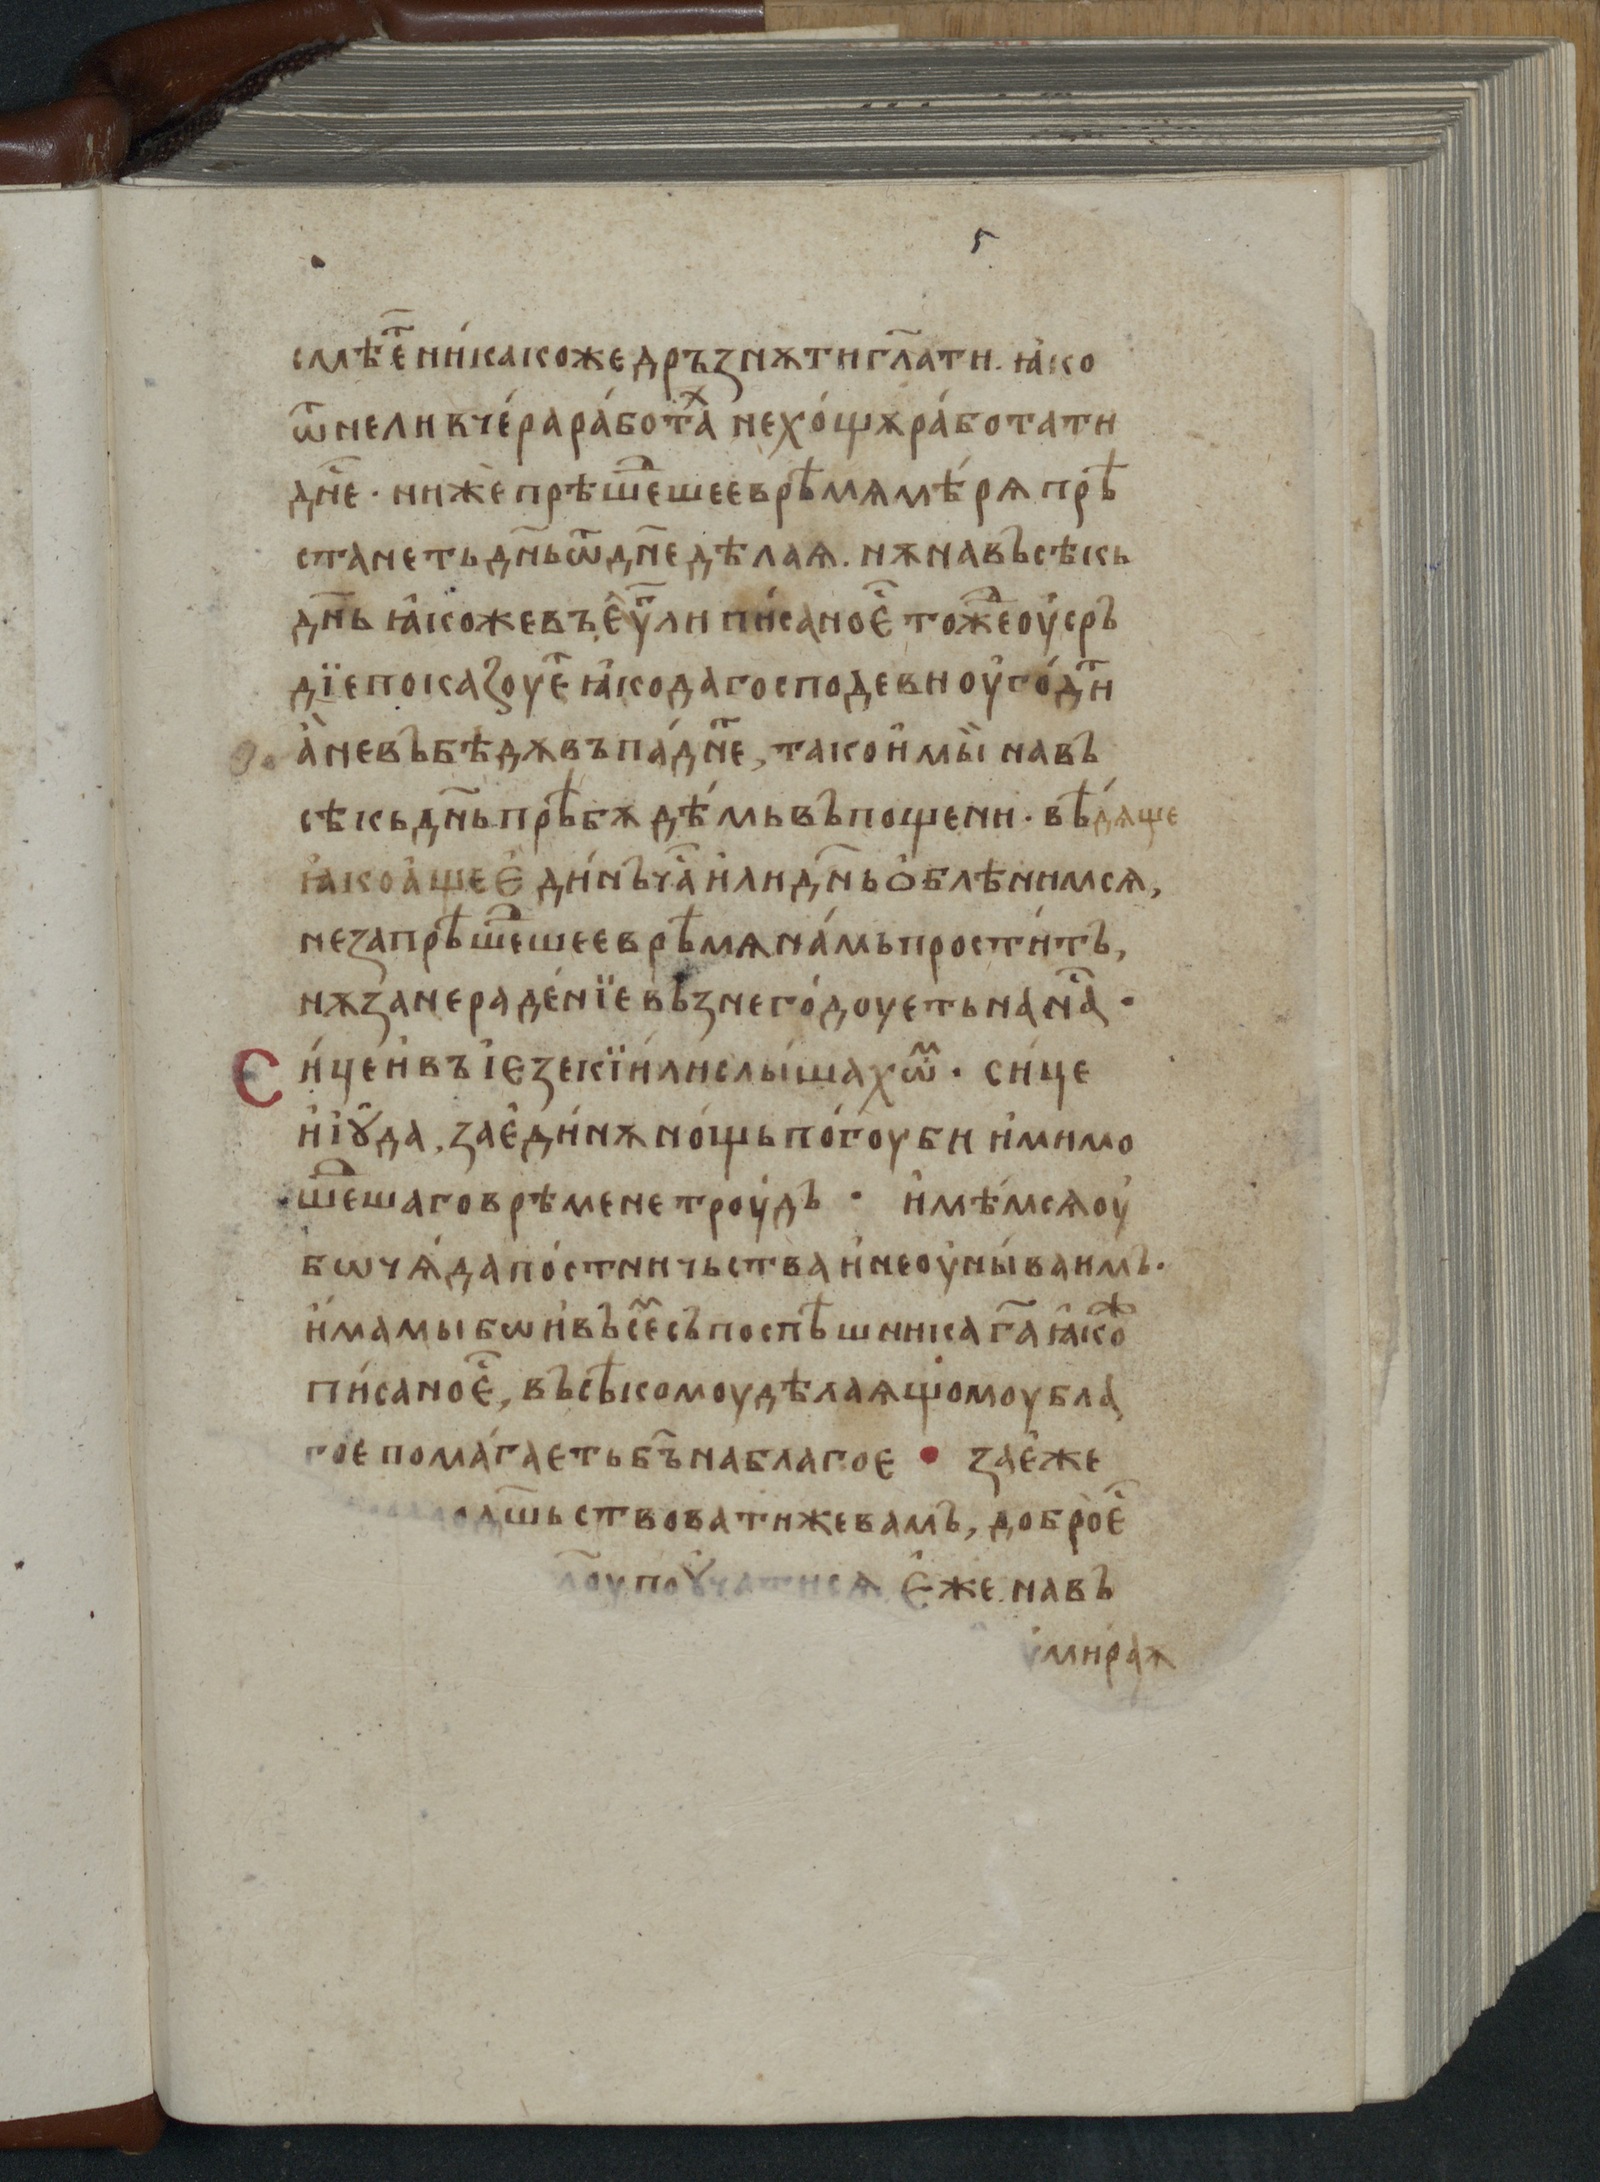 5
смѣе҃ ни́какоже дръзнѫти гл҃ати. ꙗ҆ко
ѿнеливче́ра ра́ботаⷯ не хо́щѫ ра́ботати
дн҃е · нижѐ прѣшеⷣшее врѣмѧ мѣ́рѧ прѣ
станеть дн҃ь ѿ дн҃е дѣлаѧ. нѫ на въсѣкь
дн҃ь ꙗ҆коже въ е҆ѵⷢ҇ли пи́сано еⷭ҇ тожⷣе оу҆сръ
дїе показоуеⷮ ꙗ҆ко да господеви оу҆го́дⷩ҇и
а҆̀ не въ бѣдѫ въпа́днеⷮ, тако и҆ мы̀ на въ
сѣкь дн҃ь прѣбѫдѣ́мь въ пощени · вѣ́дѧще
ꙗ҆ко а҆ще є҆ди́нъ чаⷭ҇ и҆ли дн҃ь ѻ҆блѣнимсѧ,
не за прѣшеⷣшее врѣмѧ на́мь прости́тъ,
нѫ за нераде́нїе възнего́доуеть на наⷭ҇ ·
Си́це и҆ въ і҆езекїи́ли слы́шахѡⷨ · си́це
и҆ і҆ꙋ́да, за є҆ди́нѫ но́щь по́гоуби и҆ мимо
шеⷣшаго врѣмене троу́дъ · и҆мѣ́мсѧ оу҆
бѡ чѧ́да по́стничьства и҆ не оу҆ны́ваимъ.
и҆́мамы бѡ и҆ въ сеⷨ съпоспѣшника га҃ ꙗ҆коⷤ
пи́сано еⷭ҇, въсѣкомоу дѣлаѧщомоу бла
гое помага́еть бъ҃ на благое · за е҆́же
ѡⷮьствовати же вамъ, добро̀ еⷭ҇
поꙋчатисѧ е҆́же на въ
мираѫ